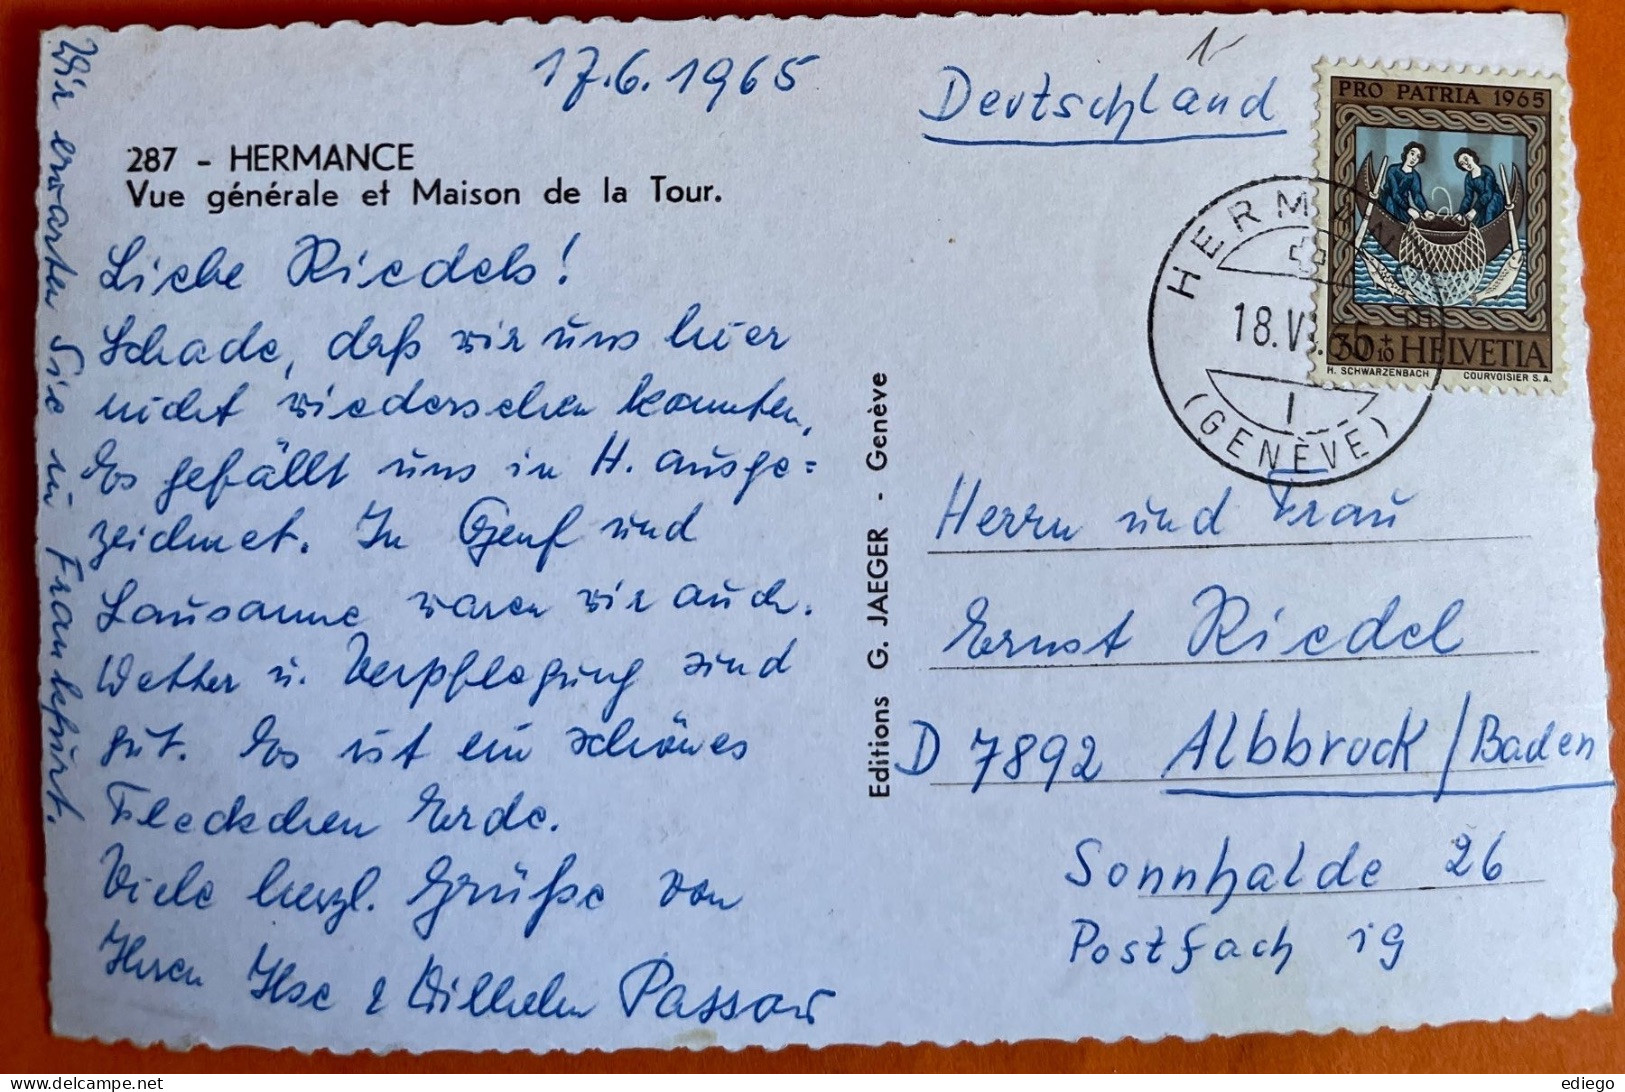 17.6.1965
287 - HERMANCE
Vue générale et Maison de la Tour.
Liebe Riedels!
Schade, daß wir uns hier
nicht wiedersehen konnten,
Es gefällt uns in H. ausge=
zeichnet. In Genf und
Lausanne waren wir auch.
Wetter u. Verpflegung sind
gut. Es ist ein schönes
Fleckchen Erde.
Viele herzl. Grüße von
Ihren Ilse & Wilhelm Passow
Wir erwarten Sie in Frankfurt.
Editions G. JAEGER - Genève
Deutschland
PRO PATRIA 1965
30+10 HELVETIA
H. SCHWARZENBACH COURVOISIER S.A.
HERMANCE
18.VI.65
(GENÈVE)
Herrn und Frau
Ernst Riedel
D 7892 Albbruck/Baden
Sonnhalde 26
Postfach 19
ediego